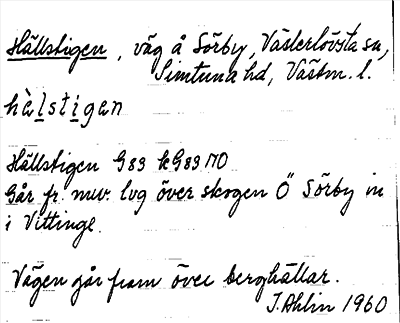 Hällstigen, väg å Sörby, Västerlövsta sn,
Simtuna hd, Västm. l.
hälstigen
Hällstigen G83 kG83 NO
Går fr. nuv. lvg över skogen Ö Sörby in
i Vittinge.
Vägen går fram över berghällar.
J. Ahlin 1960